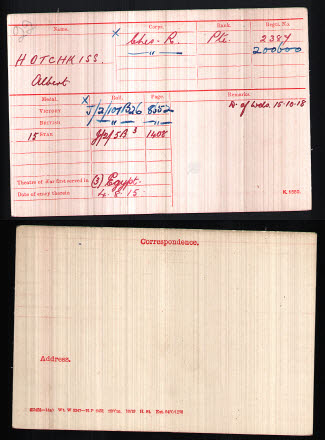 Name. Corps. Rank. Regtl. No.
HOTCHKISS Ches. R. Pte. 2387
" 200600
Albert
Medal. Roll. Page. Remarks.
Victory J/2/101B26 8352 D. of Wds 15-10-18
British " "
15 Star J/2/5B3 1408
Theatre of War first served in (3) Egypt
Date of entry therein 4.8.15 K. 1380.
Correspondence.
Address.